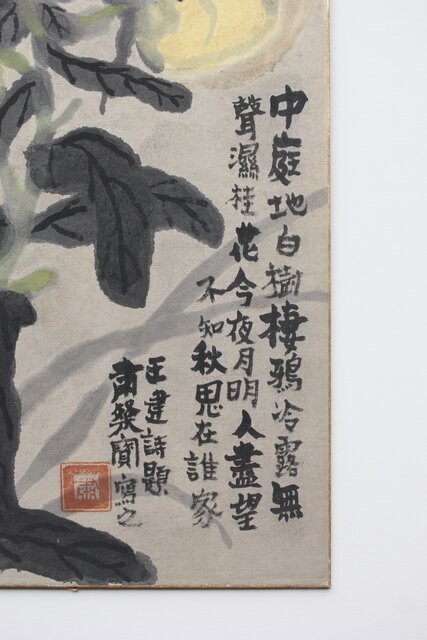 中庭地白樹棲鴉冷露無
聲濕桂花今夜月明人盡望
不知秋思在誰家
王建詩題
肅燊寶寫之
肅